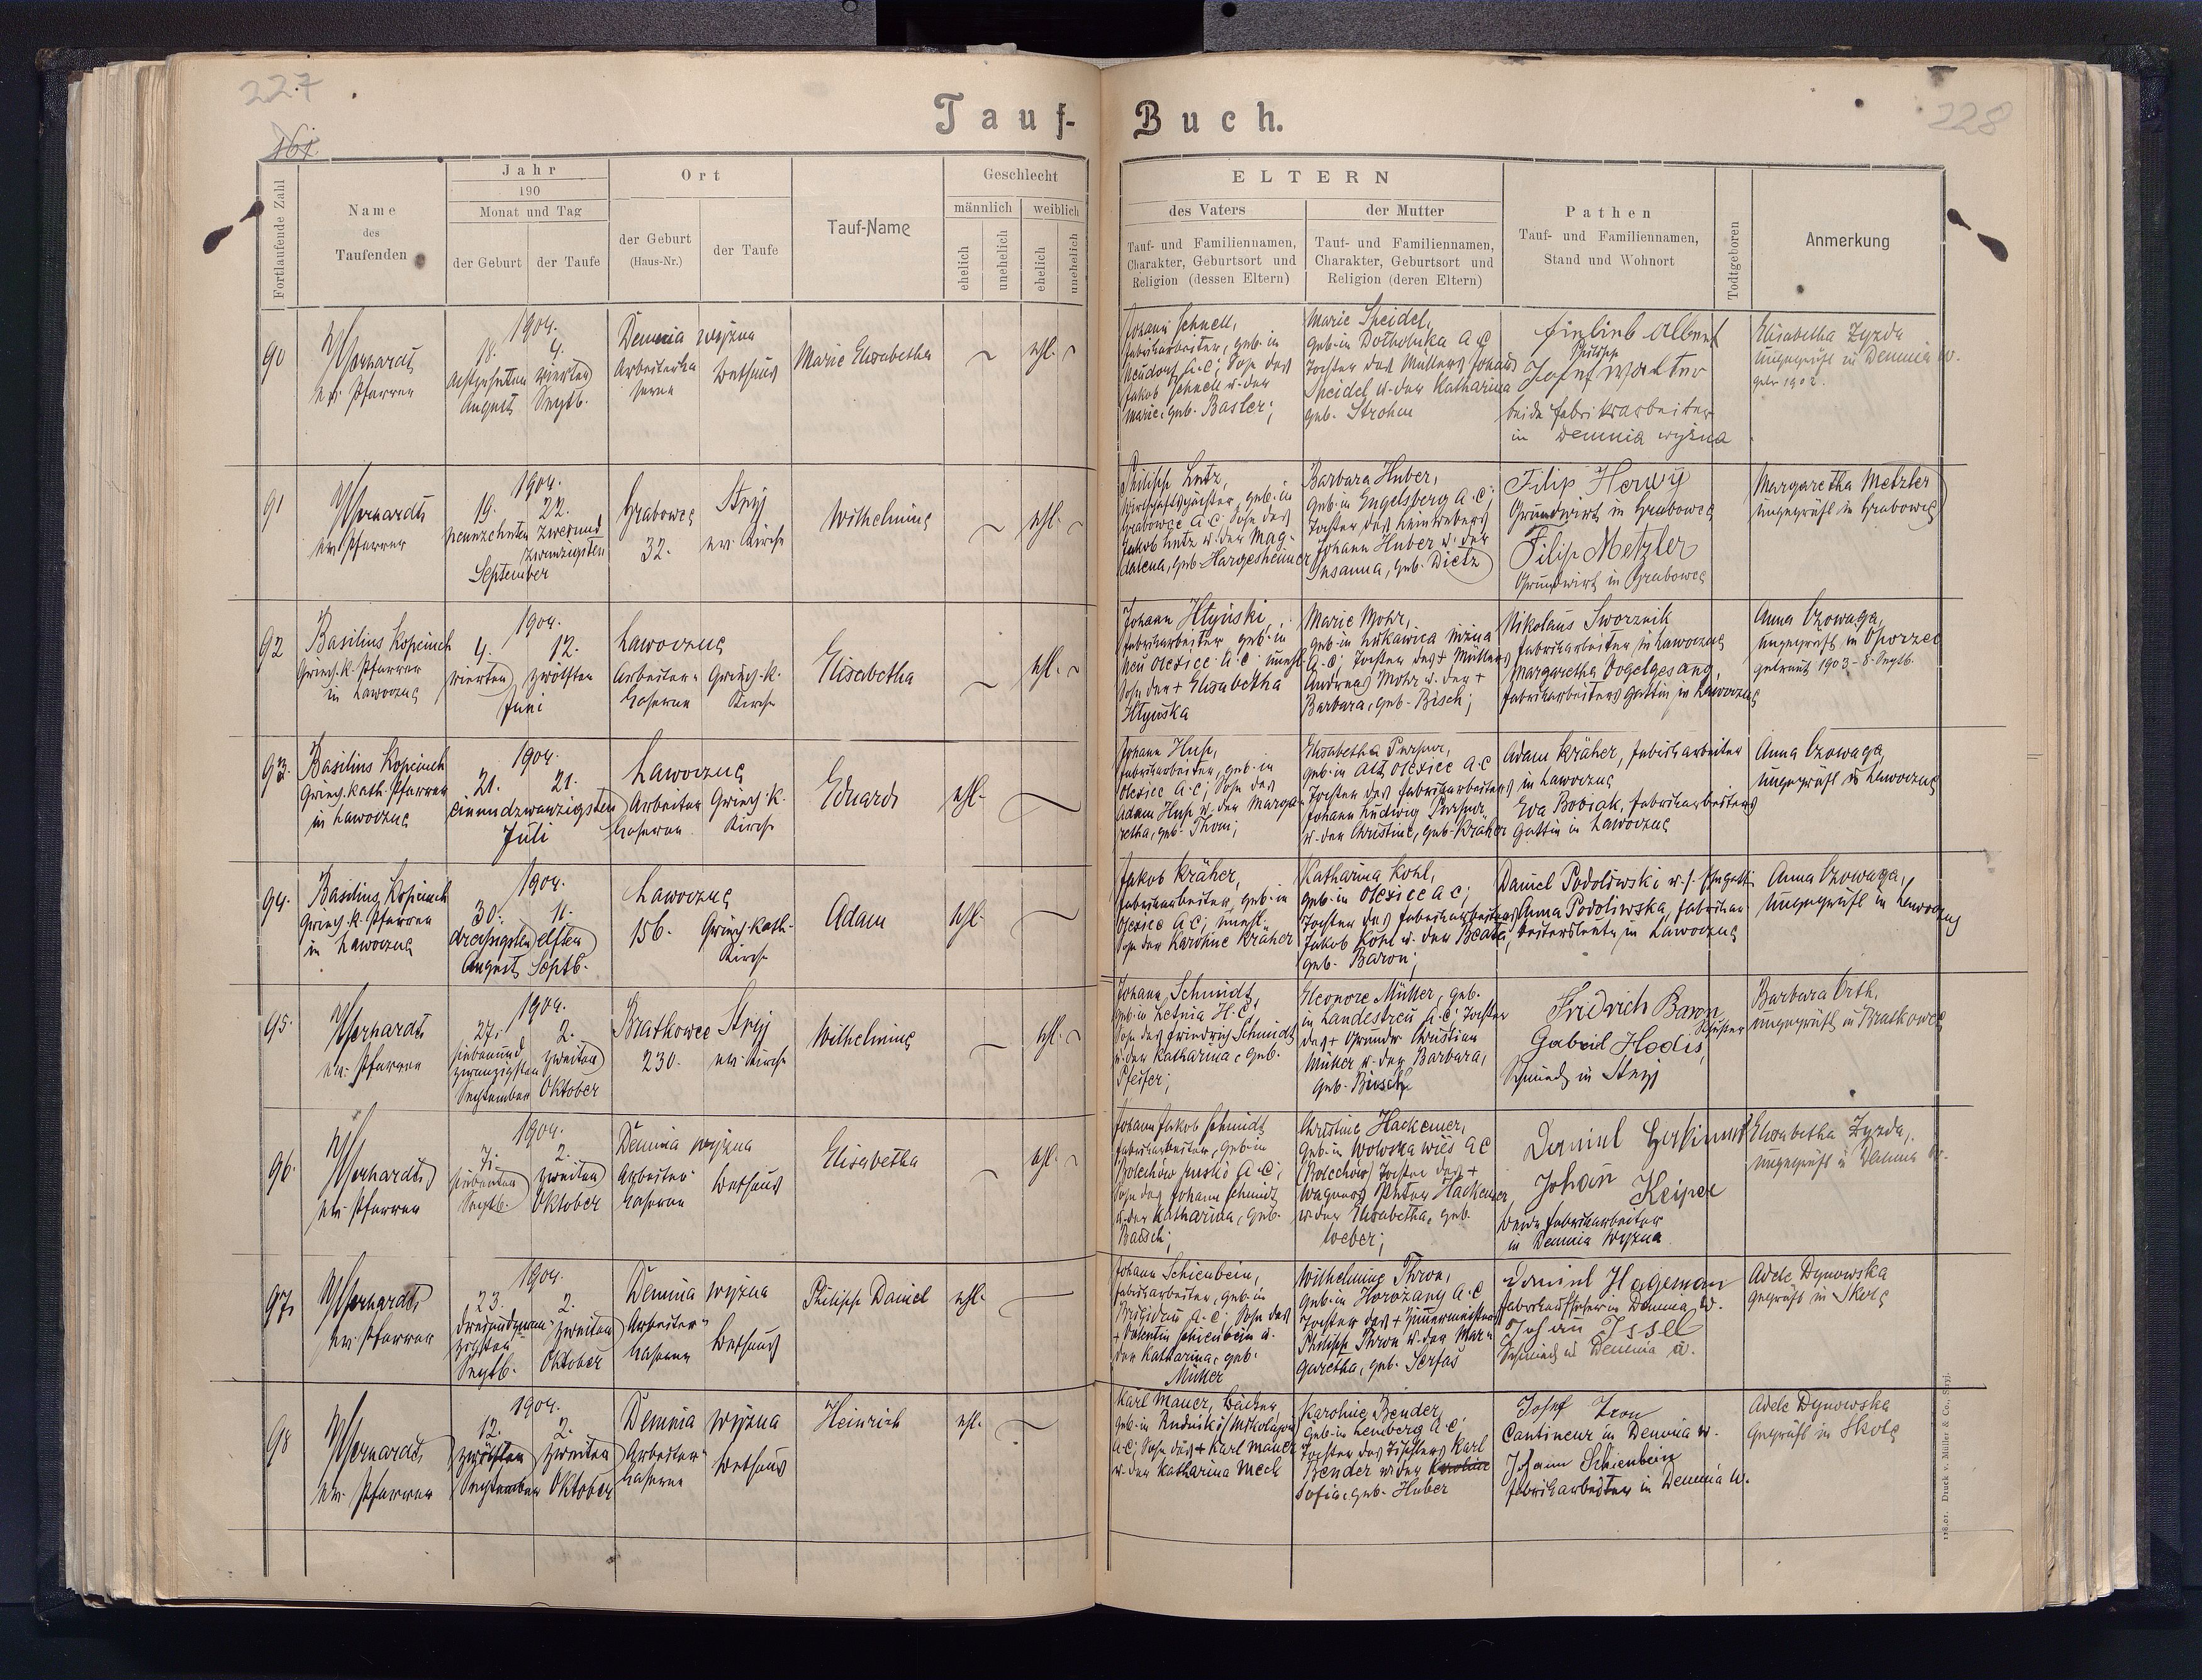 227
228
161.
Tauf-Buch.
Fortlaufende Zahl
Name
des
Taufenden
Jahr
190
Monat und Tag
der Geburt
der Taufe
Ort
der Geburt
(Haus-Nr.)
der Taufe
Tauf-Name
Geschlecht
männlich
weiblich
ehelich
unehelich
ehelich
unehelich
ELTERN
des Vaters
Tauf- und Familiennamen,
Charakter, Geburtsort und
Religion (dessen Eltern)
der Mutter
Tauf- und Familiennamen,
Charakter, Geburtsort und
Religion (deren Eltern)
Pathen
Tauf- und Familiennamen,
Stand und Wohnort
Todtgeboren
Anmerkung
90
ev. Pfarrer
1904.
18. 4.
achtzehnten vierten
August Septb.
Demnia wyżna
Arbeiterka
serne
Bethaus
Marie Elisabetha
ehl.
Johann Schnell,
Fabriksarbeiter, geb. in
Neudorf A.C; Sohn des
Jakob Schnell u. der
Marie, geb. Basler;
Marie Speidel,
geb. in Dolholuka A C
Tochter des Müllers Johann
Speidel u. der Katharina
geb. Strohm
Philipp
Josef Walter
beide Fabriksarbeiter
in Demnia wyżna
Elisabetha Zyrda
ungeprüft in Demnia w.
91
ev. Pfarrer
1904.
19. 22.
neunzehnten zweiund
zwanzigsten
September
Grabowce
32.
Stryj
ev. Kirche
Wilhelmine
ehl.
Philipp Lutz,
Wirtschaftspächter, geb. in
Grabowce A.C; Sohn des
Jakob Lutz u. der Mag-
dalena, geb. Hargesheimer
Barbara Huber,
geb. in Engelsberg A.C;
Tochter des Leinwebers
Johann Huber u. der
Susanna, geb. Dietz
Filip Herwy
Grundwirt in Grabowce
Filip Metzler
Grundwirt in Grabowce
Margaretha Metzler
ungeprüft in Grabowce
92
Basilius Kopciuch
Griech. k. Pfarrer
in Lawoczne
1904.
4. 12.
vierten zwölften
Juni
Lawoczne
Arbeiter-
Kaserne
Griech. k.
Kirche
Elisabetha
ehl.
Johann Hlyński,
Fabriksarbeiter geb. in
Neu Olexice A.C. unehl.
Sohn der + Elisabetha
Hlynska
Marie Mohr,
geb. in Lukawica niżna
A.C; Tochter des + Müllers
Andreas Mohr u. der +
Barbara, geb. Bisch;
Nikolaus Sworznik
Fabriksarbeiter in Lawoczne
Margaretha Vogelgesang,
Fabriksarbeiters Gattin in Lawoczne
Anna Czowaga,
ungeprüft in Oporzec
getraut 1903 - 8. Septb.
93.
Basilius Kopciuch
Griech. kath. Pfarrer
in Lawoczne
1904.
21. 21.
einundzwanzigsten
Juli
Lawoczne
Arbeiter
Kaserne
Griech. k.
Kirche
Eduard
ehl.
Johann Hup,
Fabriksarbeiter, geb. in
Olexice A.C; Sohn des
Adam Hup u. der Marga-
retha, geb. Thom;
geb. in Alt Olexice A C
Tochter des Fabriksarbeiters
Johann Ludwig
u. der Christine, geb. Kräher
Adam Kräher, Fabriksarbeiter
in Lawoczne
Eva Bobiak, Fabriksarbeiters
Gattin in Lawoczne
Anna Czowaga
ungeprüft in Lawoczne
94.
Basilius Kopciuch
Griech. k. Pfarrer
in Lawoczne
1904.
30. 11.
dreissigsten elften
August Septb.
Lawoczne
156.
Griech. kath.
Kirche
Adam
ehl.
Jakob Kräher,
Fabriksarbeiter, geb. in
Olexice A C; unehl.
Sohn der Karoline Kräher
Katharina Kohl,
geb. in Olexice A C;
Tochter des Fabriksarbeiters
Jakob Kohl u. der Beata,
geb. Baron;
Daniel Podoliwski u. s. Ehegattin
Anna Podoliwska, Fabriksar-
beitersleute in Lawoczne
Anna Czowaga,
ungeprüft in Lawoczne
95.
ev. Pfarrer
1904.
27. 2.
siebenund zweiten
zwanzigsten
September Oktober
Bratkowce
230.
Stryj
ev. Kirche
Wilhelmine
ehl.
Johann Schmidt,
geb. in Letnia H.C;
Sohn des Friedrich Schmidt
u. der Katharina, geb.
Pfeifer;
Eleonore Müller, geb.
in Landestreu A.C; Tochter
des + Grundw. Christian
Müller u. der Barbara,
geb. Busch
Fridrich Baron
Gabriel Hodis,
Schmied in Stryj
Barbara Orth,
ungeprüft in Bratkowce
96.
ev. Pfarrer
1904.
7. 2.
siebenten zweiten
Septb. Oktober
Demnia wyżna
Arbeiter-
Kaserne
Bethaus
Elisabetha
ehl.
Johann Jakob Schmidt
Fabriksarbeiter, geb. in
Bolechow ruski A.C;
Sohn des Johann Schmidt
u. der Katharina, geb.
Badsch;
Christine Hackemer,
geb. in Wolowska wies A C
(Bolechów) Tochter des +
Wagners Peter Hackemer,
u. der Elisabetha, geb.
Weber;
Johan Keiper
beide Fabriksarbeiter
in Demnia wyżna
Elisabetha Zyrda,
ungeprüft in Demnia w.
97.
ev. Pfarrer
1904.
23. 2.
dreiundzwan- zweiten
zigsten
Septb. Oktober
Demnia wyżna
Arbeiter-
Kaserne
Bethaus
Philipp Daniel
ehl.
Johann Schienbein,
Fabriksarbeiter, geb. in
Brigidau A.C; Sohn des
+ Valentin Schienbein u.
der Katharina, geb.
Müller
Wilhelmine Thron,
geb. in Horozany A.C
Tochter des + Zimmermeisters
Philipp Thron u. der Mar-
garetha, geb. Serfas
Daniel Hageman
Fabriksaufseher in Demnia w.
Johan Issel
Schmied in Demnia w.
Adele Dynowska
geprüft in Skole
98
ev. Pfarrer
1904.
12. 2.
zwölften zweiten
September Oktober
Demnia wyżna
Arbeiter-
Kaserne
Bethaus
Heinrich
ehl.
Karl Mauer, Bäcker,
geb. in Rudniki/Mikolajow
A.C; Sohn des + Karl Mauer
u. der Katharina Mech
Karoline Bender,
geb. in Lemberg A.C
Tochter des Tischlers Karl
Bender u. der Karoline
Sofia, geb. Huber
Josef Tron
Cantineur in Demnia w.
Johann Schienbein
Fabriksarbeiter in Demnia w.
Adele Dynowska
geprüft in Skole
Druck v. Müller & Co., Stryj.